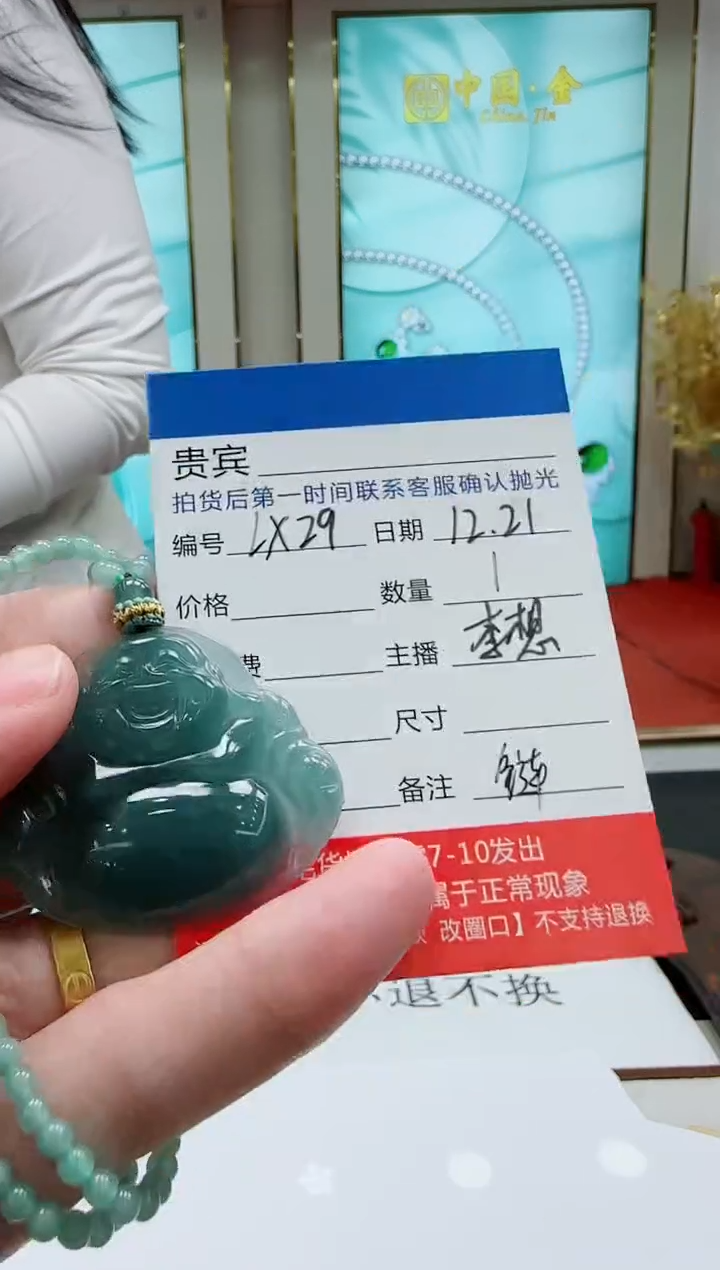 中国·金
China Jin
贵宾
拍货后第一时间联系客服确认抛光
编号 LX29 日期 12.21
价格 数量 1
费 主播 李想
尺寸
备注 链
7-10发出
属于正常现象
改圈口】不支持退换
退不换